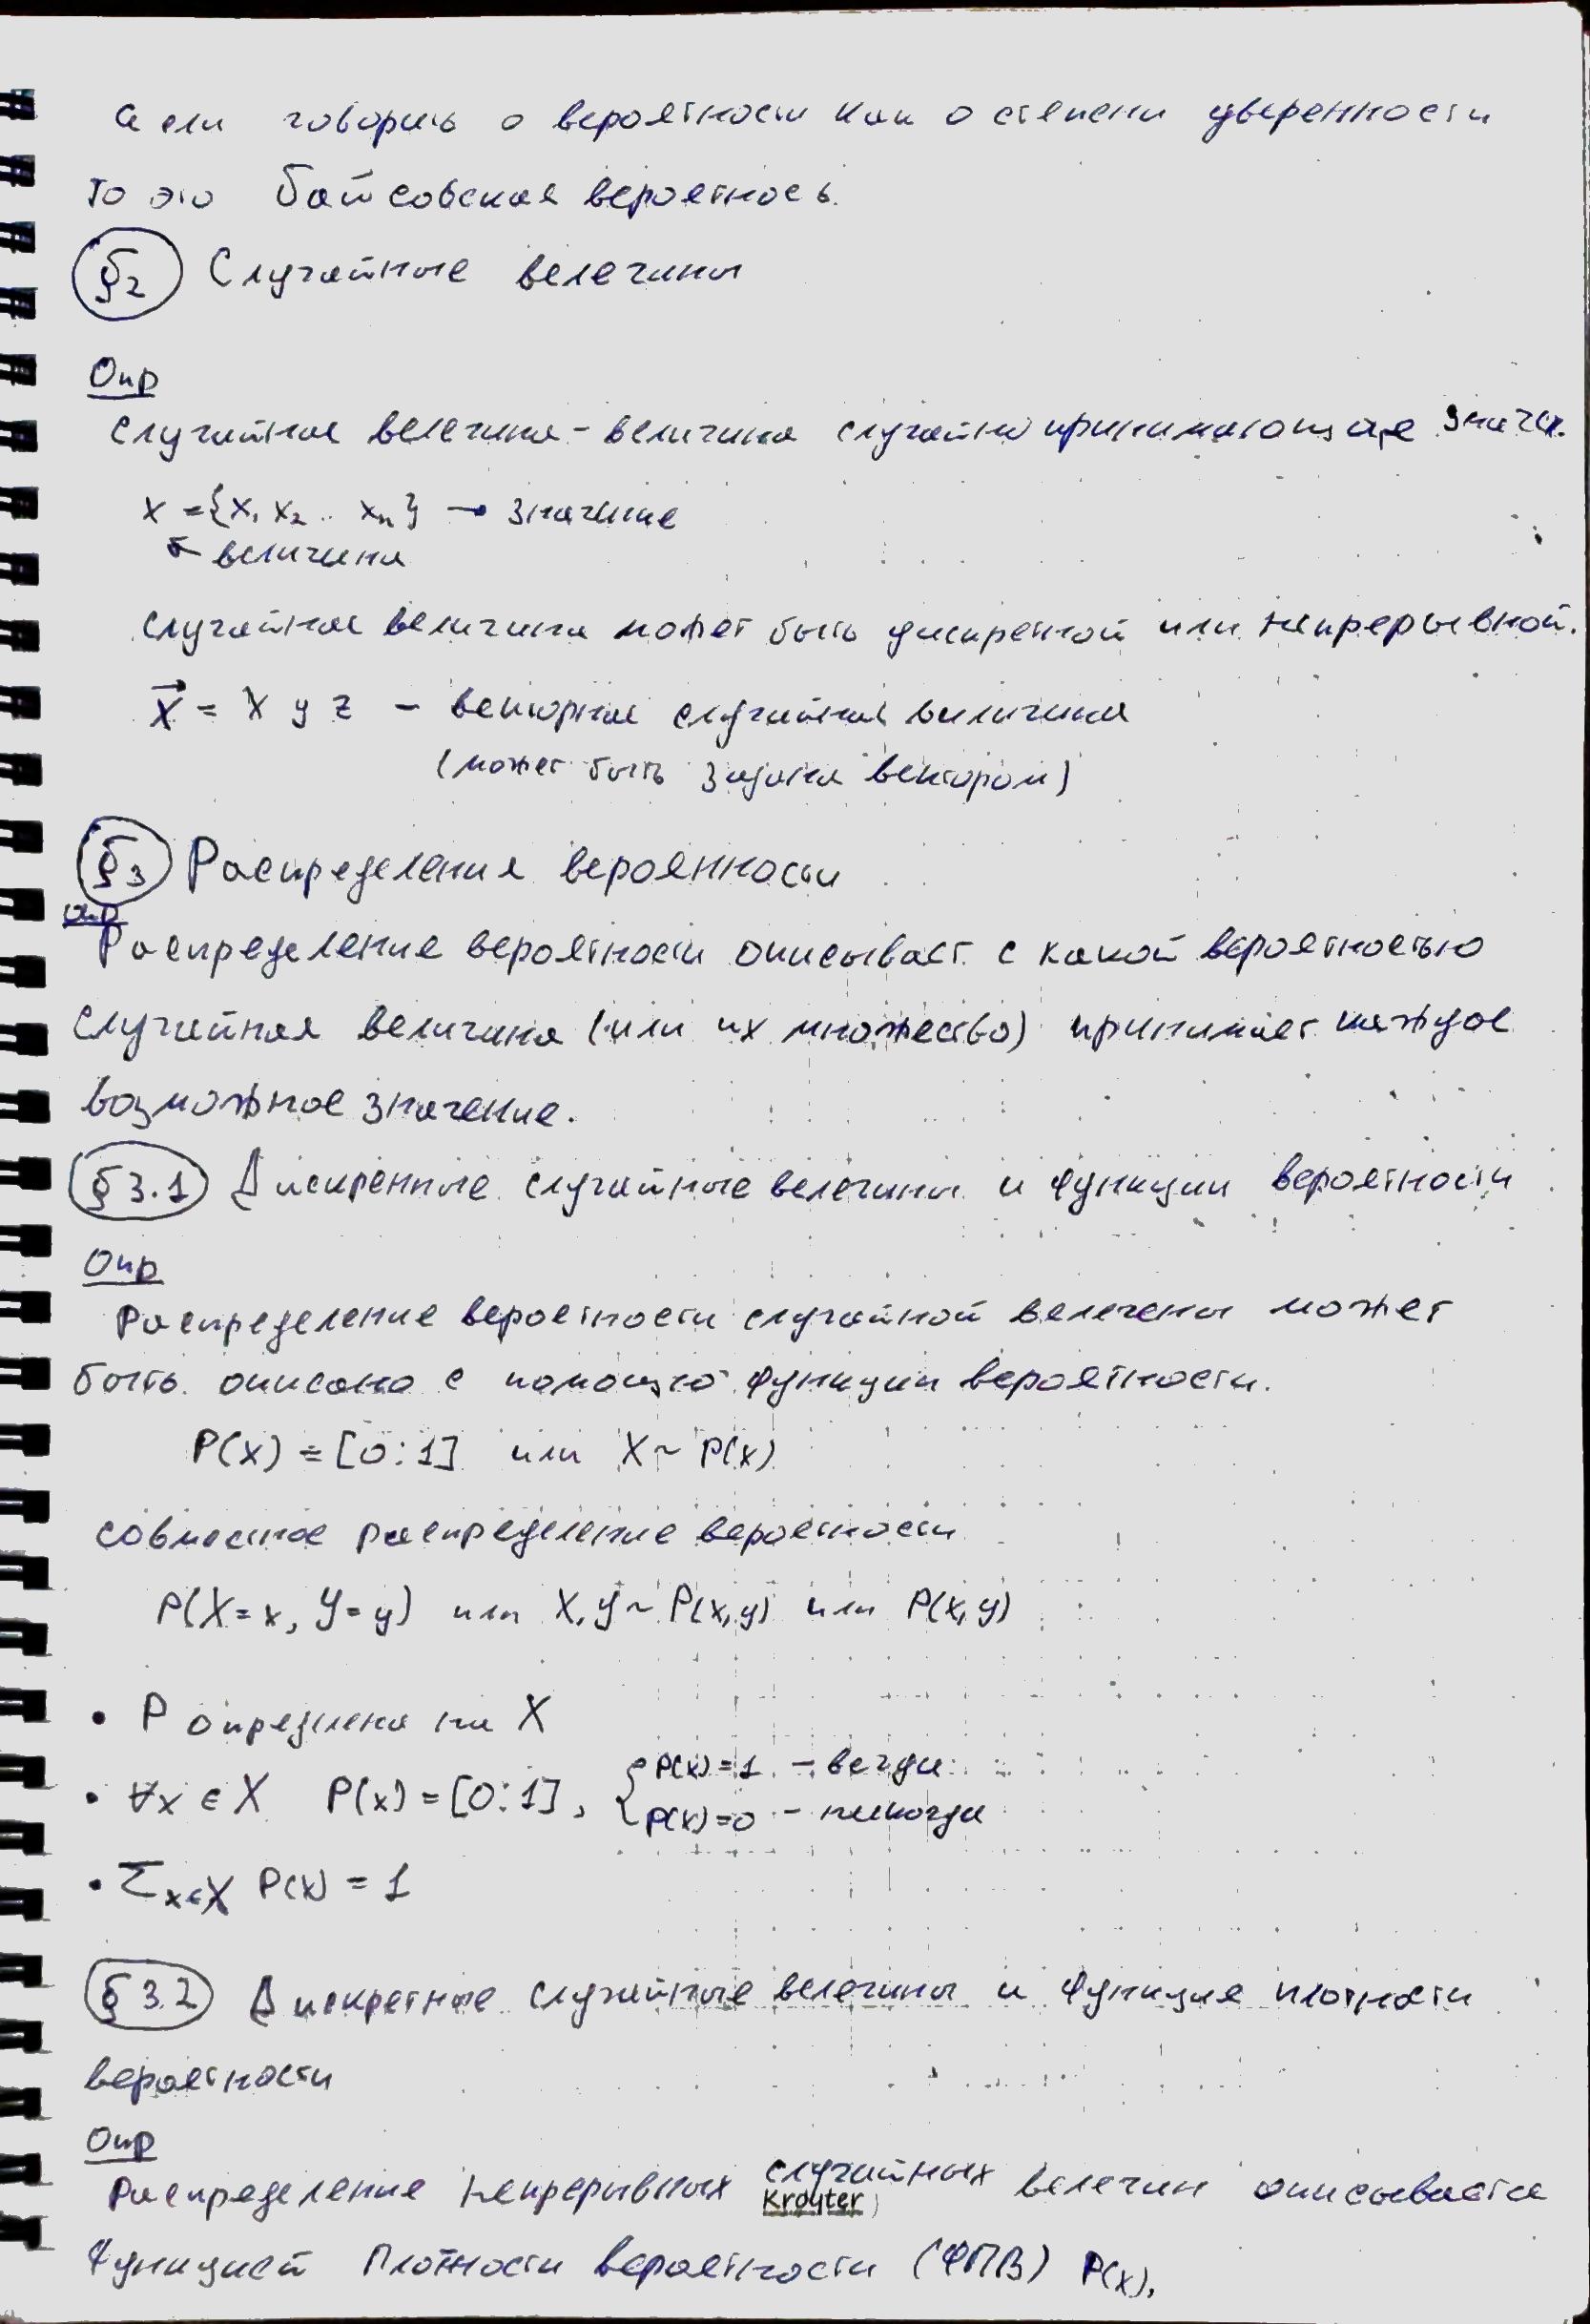 если говорить о вероятности как о степени уверенности
то это байсовская вероятнось.
§2 Случайные велечины
Опр
Случайная велечина - величина случайно принимающая знач.
X = {x₁ x₂ .. xₙ} → значение
↖ величина
Случайная величина может быть дискретной или непрерывной.
X⃗ = X y z - векторная случайная величина
(может быть задана вектором)
§3 Распределения вероянности
опр
Распределение вероятности описывает с какой вероятностью
случайная величина (или их множество) принимает каждое
возможное значение.
§3.1 Дискренные случайные велечины и функции вероятности
Опр
Распределение вероятности случайной велечены может
быть описано с помощью функции вероятности.
P(X) = [0:1] или X ~ P(x)
совместное распределение вероятности
P(X=x, Y=y) или X,y ~ P(x,y) или P(x,y)
• P определена на X
• ∀x ∈ X P(x) = [0:1], { P(x)=1 - везде
P(x)=0 - никогда
• Σx∈X P(x) = 1
§3.2 Дискретные случайные велечины и функция плотности
вероятности
Опр
Распределение непрерывных случайных велечин описывается
Kroyter
функцией плотности вероятности (ФПВ) P(x),